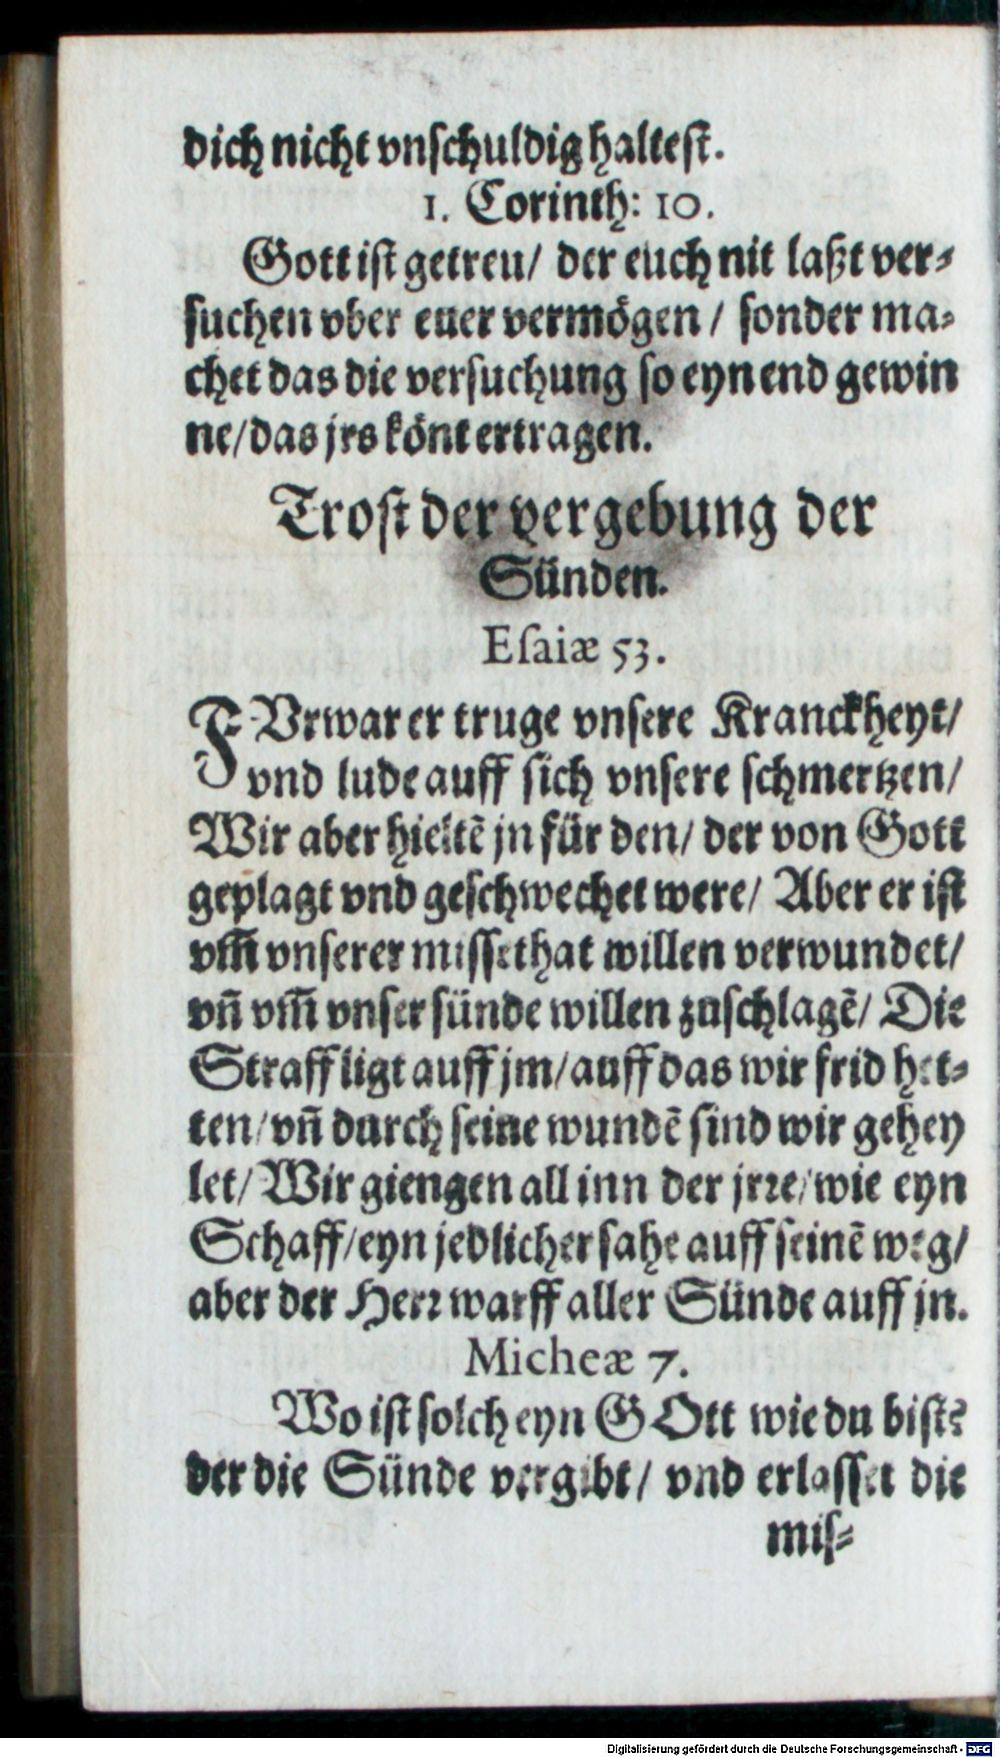 dich nicht vnschuldig haltest.
1. Corinth: 10.
Gott ist getreu/ der euch nit laßt ver-
suchen vber euer vermögen/ sonder ma-
chet das die versuchung so eyn end gewin
ne/das jrs könt ertragen.
Trost der vergebung der
Sünden.
Esaiæ 53.
FVrwar er truge vnsere Kranckheyt/
vnd lude auff sich vnsere schmertzen/
Wir aber hieltē jn für den/ der von Gott
geplagt vnd geschwechet were/ Aber er ist
vm̄ vnserer missethat willen verwundet/
vn̄ vm̄ vnser sünde willen zuschlagē/ Die
Straff ligt auff jm/auff das wir frid het-
ten/vn̄ durch seine wundē sind wir gehey
let/ Wir giengen all inn der jrre/wie eyn
Schaff/eyn jedlicher sahe auff seinē weg/
aber der Herr warff aller Sünde auff jn.
Micheæ 7.
Wo ist solch eyn GOtt wie du bist?
der die Sünde vergibt/ vnd erlasset die
mis-
Digitalisierung gefördert durch die Deutsche Forschungsgemeinschaft - DFG